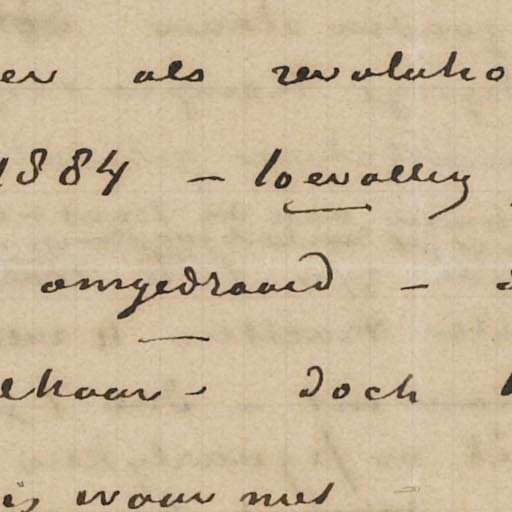 en als revolutio
1884 – toevallig
omgedraaid –
elkaar – doch
is waar met